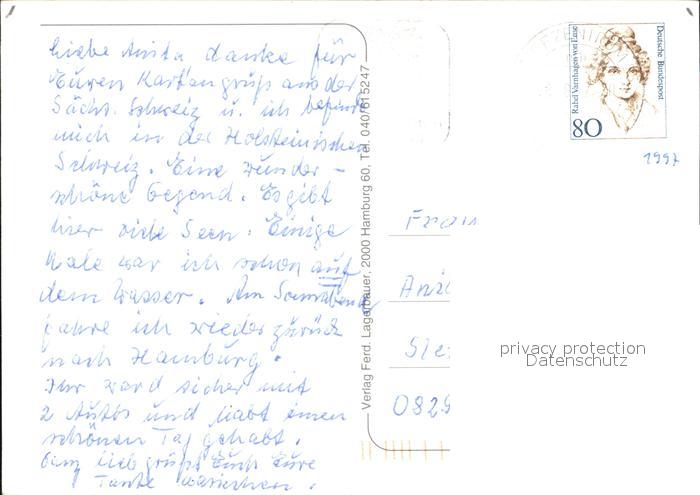 Liebe Anita danke für
Euren Kartengruß aus der
Sächs. Schweiz u. ich befinde
mich in der Holsteinischen
Schweiz. Eine wunder-
schöne Gegend. Es gibt
hier viele Seen. Einige
Male war ich schon auf
dem Wasser. Am Sonnabend
fahre ich wieder zurück
nach Hamburg.
Ihr ward sicher mit
2 Autos und habt einen
schönen Tag gehabt.
Ganz lieb grüßt Euch Eure
Tante
Verlag Ferd. Lagerbauer, 2000 Hamburg 60, Tel. 040/615247
Rahel Varnhagen von Ense
Deutsche Bundespost
80
1997
Frau
0829
privacy protection
Datenschutz